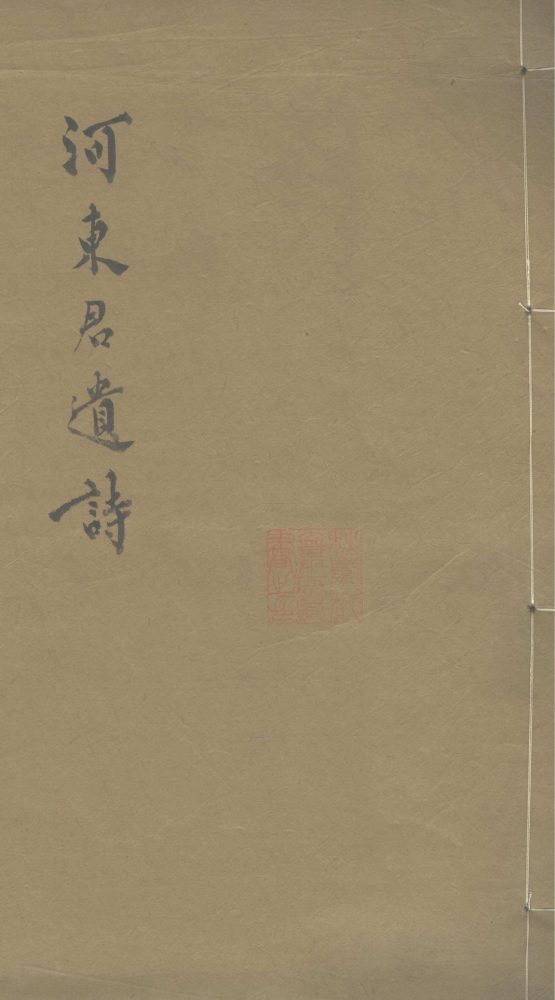 河東君遺詩